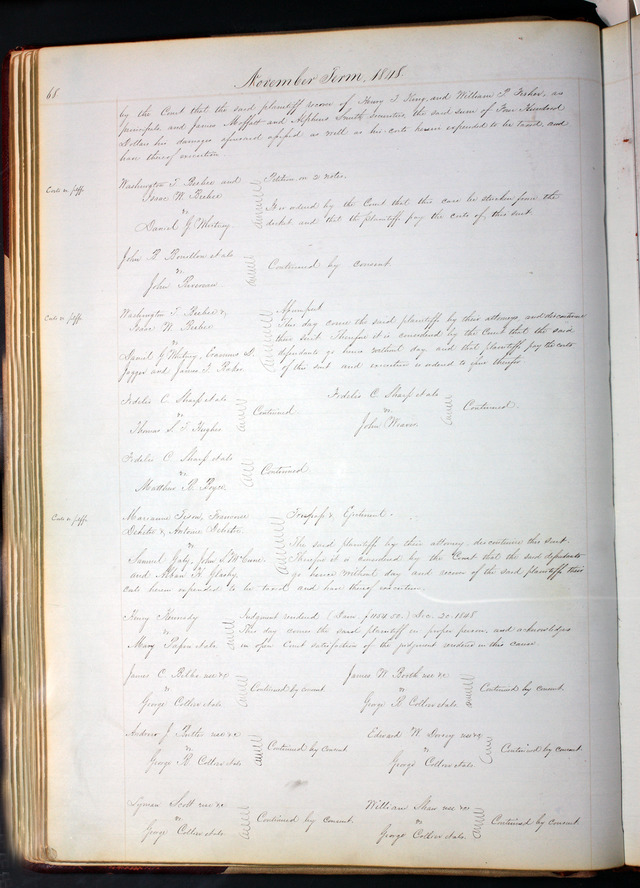 68
November Term, 1848
by the Court that the said plaintiff recover of Henry T King, and William P. Fisher, as
principals and James Moffett and Alpheus Smith Securities, the said sum of Four Hundred
Dollars his damages aforesaid assessed as well as his costs herein expended to be taxed, and
have thereof execution
Costs vs. plffs.
Washington T. Beebee and
Isaac N. Beebee
vs
Daniel G. Whitney.
Petition on 2 notes.
It is ordered by the Court that this case be stricken from the
docket and that the plaintiffs pay the costs of this suit.
John B. et als
vs.
John
Continued by consent.
Costs vs. plffs.
Washington T. Beebee &
Isaac N. Beebee
vs
Daniel G Whitney, Erasmus
and James T. Baker.
Assumpsit
This day come the said plaintiffs by their attorney, and discontinue
their suit. Therefore it is considered by the Court that the said
defendants go hence without day and that plaintiffs pay the costs
of this suit and execution is ordered to issue therefor.
Fidelio C. Sharp et als
vs
Thomas S. T Hughes
Continued
Fidelio C. Sharp et als
vs.
John Weaver.
Continued.
Fidelio C. Sharp et als
vs
Matthew R.
Continued
Costs vs. plffs.
Marianne Tison, Francoise
&, Antoine
vs
Samuel Gaty, John S. McCune
and Alban H. Glasby.
Trespass & Ejectment.
The said plaintiffs by their attorney, discontinue this suit.
Therefore it is considered by the Court that the said defendants
go hence without day and recover of the said plaintiffs their
costs herein expended to be taxed and have thereof execution.
Henry Kennedy
vs
Mary Papin et als
Judgment rendered (Dam. $1154.50.) Dec. 20. 1848
This day comes the said plaintiff in proper person, and acknowledges
in open Court satisfaction of the judgment rendered in this cause.
James C. use &c
vs
George Collier et als
Continued by consent
James N. Booth use &c
vs
George R. Collier et als
Continued by consent.
Andrew J. use &c
vs
George R. Collier et als
Continued by consent
Edward W. use &c
vs
George Collier et als
Continued by consent
Lyman Scott use &c
vs
George Collier et als
Continued by consent.
William Shaw use &c
vs
George Collier et als.
Continued by consent